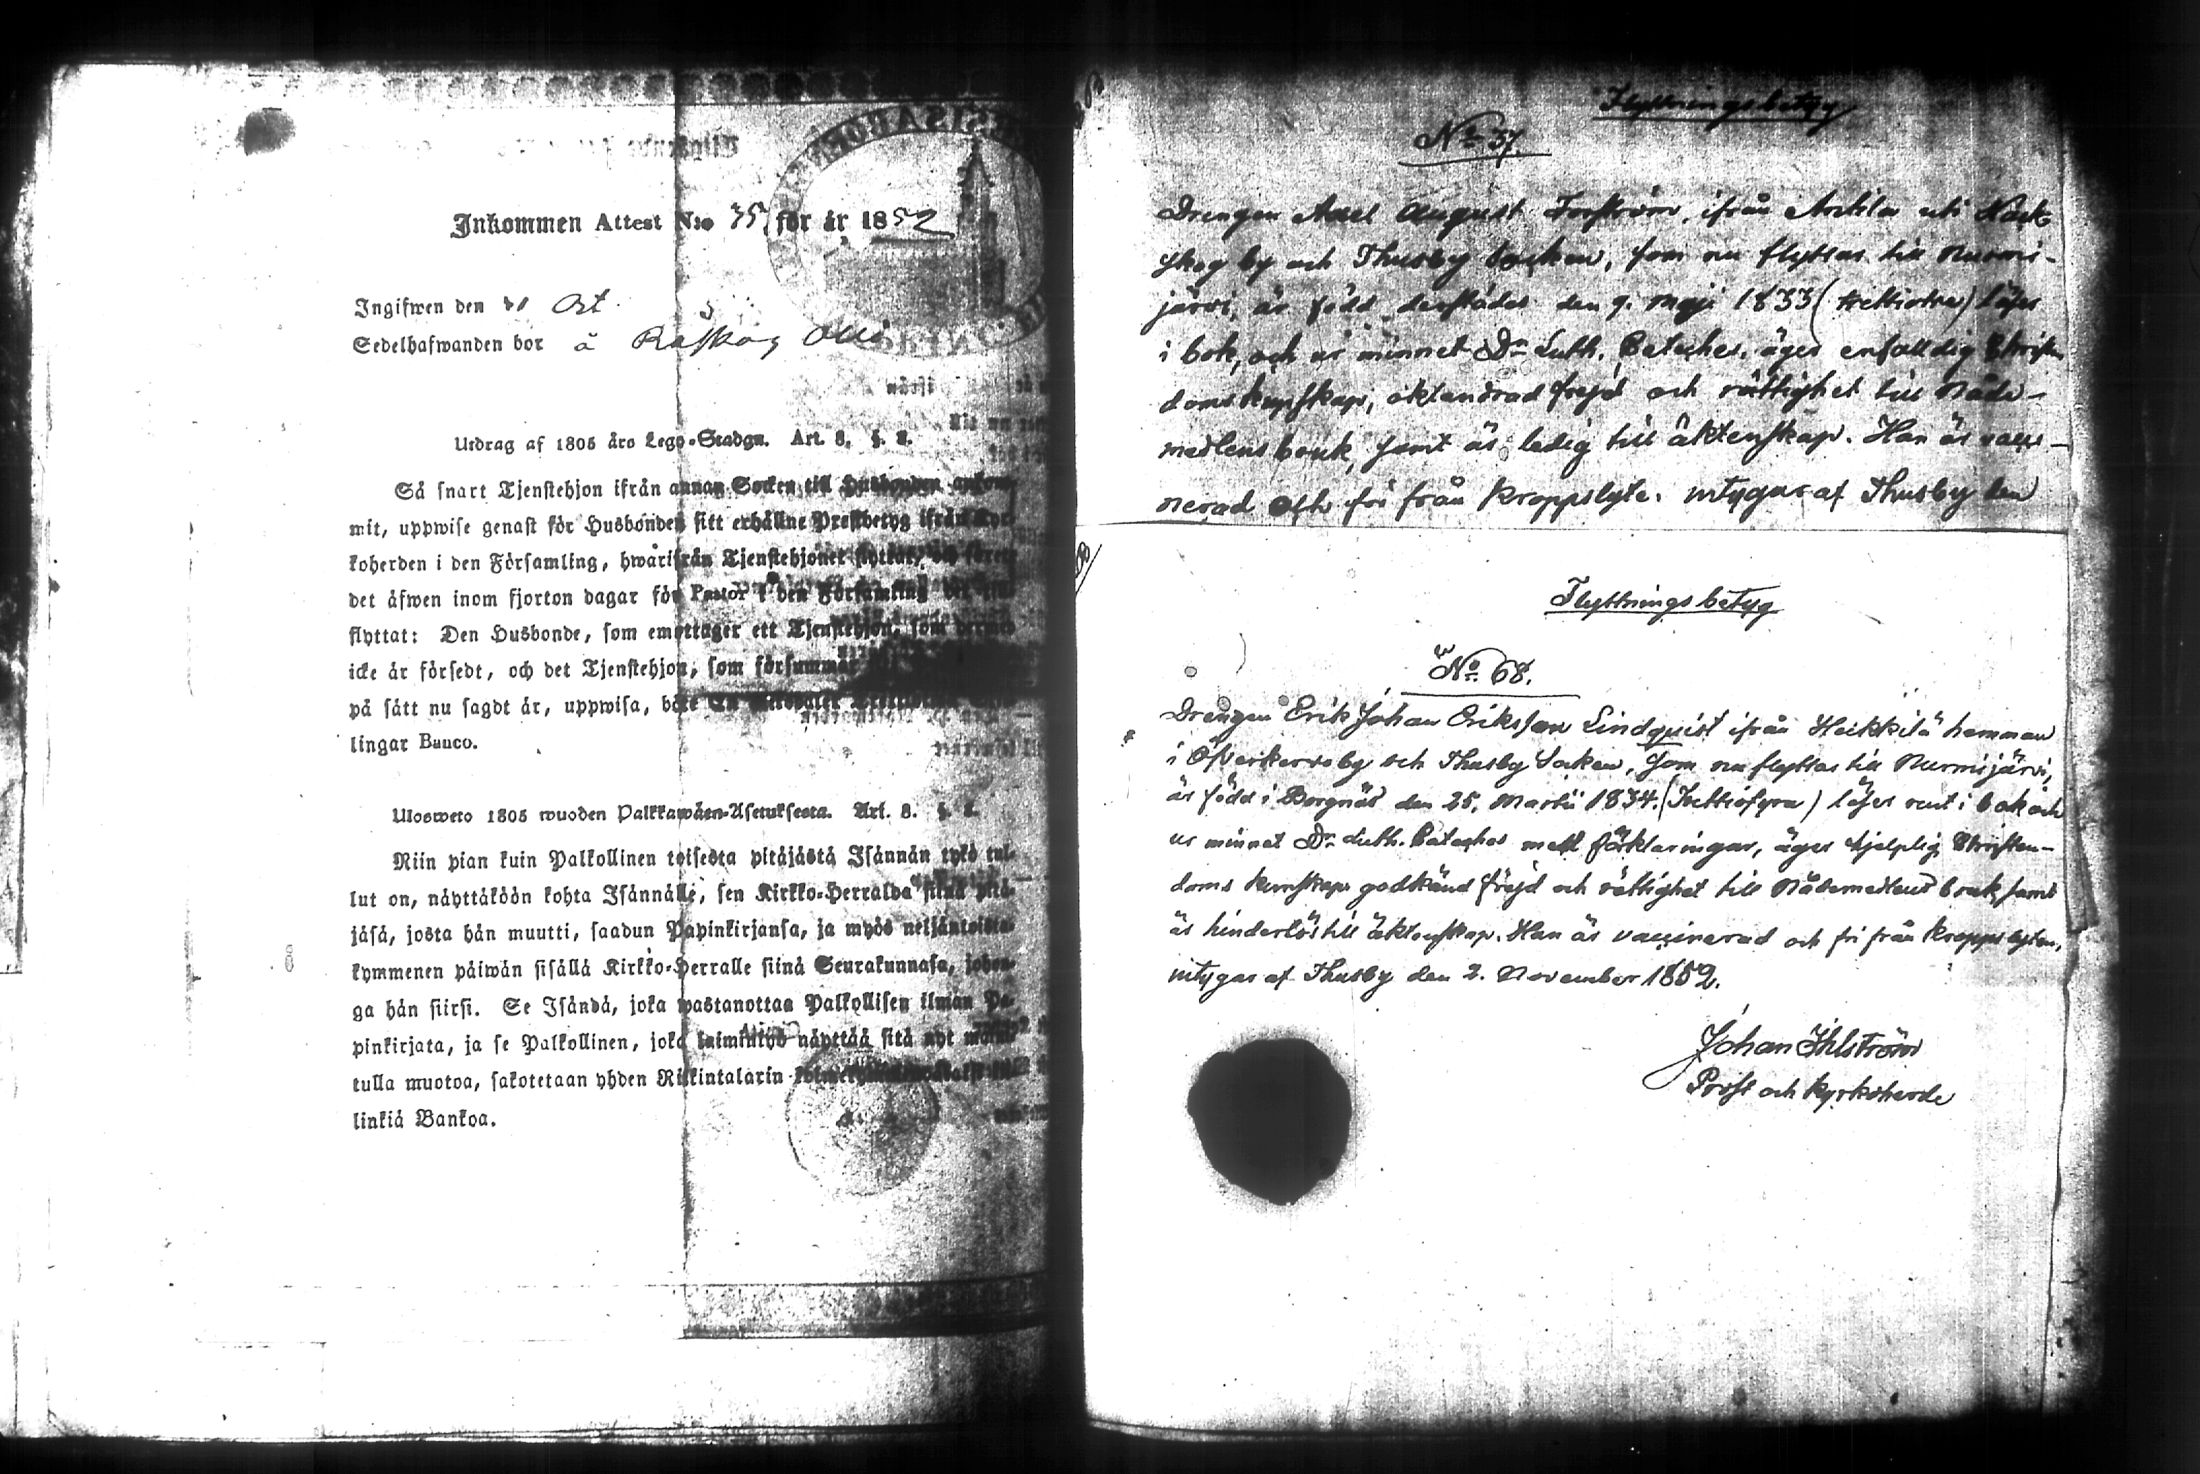 Inkommen Attest N:o 35 för år 1852
Ingifwen den Oct.
Sedelhafwanden bor å Råskog Olli
Utdrag af 1805 års Lego-Stadgn. Art. 8. §. 2.
Så snart Tjenstehjon ifrån annan Socken till Husbonden ankom-
mit, uppwise genast för Husbonden sitt erhållne Prestbetyg ifrån Kyr-
koherden i den Församling, hwarifrån Tjenstehjonet flyttat,
det äfwen inom fjorton dagar för Pastor i den Församling
flyttat: Den Husbonde, som emottager ett Tjenstehjon, som dermed
icke är försedt, och det Tjenstehjon, som försummar
på sätt nu sagdt är, uppwisa, böte
lingar Banco.
Ulosweto 1805 wuoden Palkkawäen-Asetuksesta. Art. 8. §. 2.
Niin pian kuin Palkollinen toisesta pitäjästä Isännän tykö tul-
lut on, näyttäköön kohta Isännälle, sen Kirkko-Herralda siinä pitä-
jäsä, josta hän muutti, saadun Papinkirjansa, ja myös neljäntoista-
kymmenen päiwän sisällä Kirkko-Herralle siinä Seurakunnasa, johon-
ga hän siirsi. Se Isändä, joka wastanottaa Palkollisen ilman Pa-
pinkirjata, ja se Palkollinen, joka laiminlyö näyttää sitä nyt maini-
tulla muotoa, sakotetaan yhden Riikintalarin
linkiä Bankoa.
Flyttningsbetyg
No 37.
Drengen Axel August Forström, ifrån Anttila uti Näck-
skog by och Thusby Socken, som nu flyttas till Nurmi-
järvi, är född derstädes den 9. Maji 1833 (trettiotre) läser
i bok, och ur minnet Dr Luth. Cateches. äger enfaldig Christen
domskunskap, oklandrad frejd och rättighet till Nåde-
medlens bruk, samt är ledig till äktenskap. Han är vacci-
nerad och fri från kroppslyte, intygar af Thusby den
Flyttningsbetyg
No 68.
Drengen Erik Johan Eriksson Lindquist ifrån Heikkilä hemman
i Öfverkervo by och Thusby Socken, som nu flyttas till Nurmijärvi,
är född i Borgnäs den 25. Martii 1834. (Trettiofyra) läser rent i bok och
ur minnet Dr Luth. Cateches med förklaringar, äger hjelplig Christen-
doms kunskap godkänd frejd och rättighet till Nådemedlens bruk, samt
är hinderlös till äktenskap. Han är vaccinerad och fri från kroppslyten,
intygar af Thusby den 2. November 1852.
Johan Ihlström
Prost och kyrkoherde